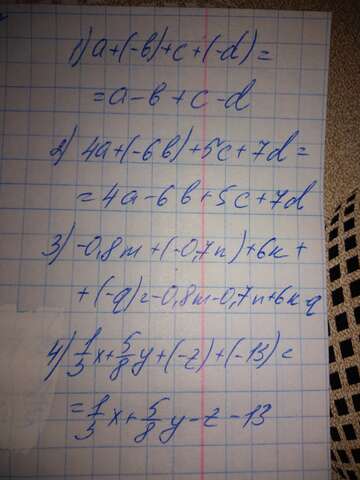 1) a+(-b)+c+(-d)=
=a-b+c-d
2) 4a+(-6b)+5c+7d=
=4a-6b+5c+7d
3) -0,8m+(-0,7n)+6k+
+(-q)=-0,8m-0,7n+6k q
4) 1/3x+5/8y+(-z)+(-13)=
=1/3x+5/8y-z-13